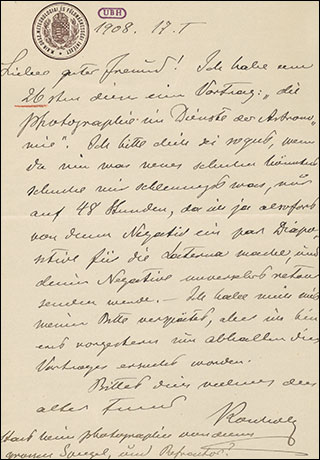 UBH
1908. 17. I
Liebes guter Freund! Ich habe am
26sten dies ein Vortrag: „die
photographie im Dienste der Astrono-
mie". Ich bitte dich
da mir was neues
schicke mir schleunigst was, nur
auf 48 Stunden, da ich ja sofort
von dem Negativ ein par Diapo-
sitive für die Laterna mache, und
deine Negative retour
senden werde. — Ich habe mich mit
meiner Bitte verspätet, aber ich bin
erst vorgestern um abhalten des
Vortrages ersucht worden.
Bittet dich vielmals dein
alter Freund
Konkoly
Hast kein photographie von deinem
grossen Spiegel, und Refractor?